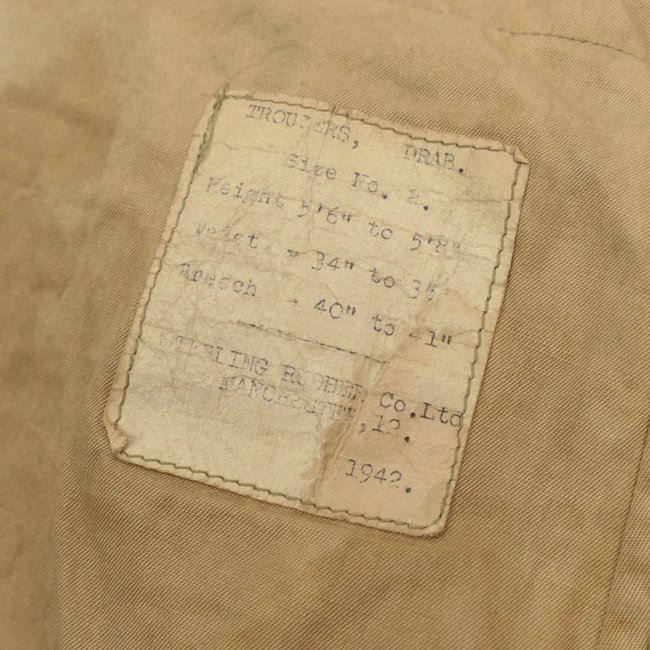 TROUSERS, DRAB.
Size No. 2.
Height 5'6" to 5'8"
Waist - 34" to 35"
Breech - 40" to 41"
RUBBER Co.Ltd
MANCHESTER,12.
1942.